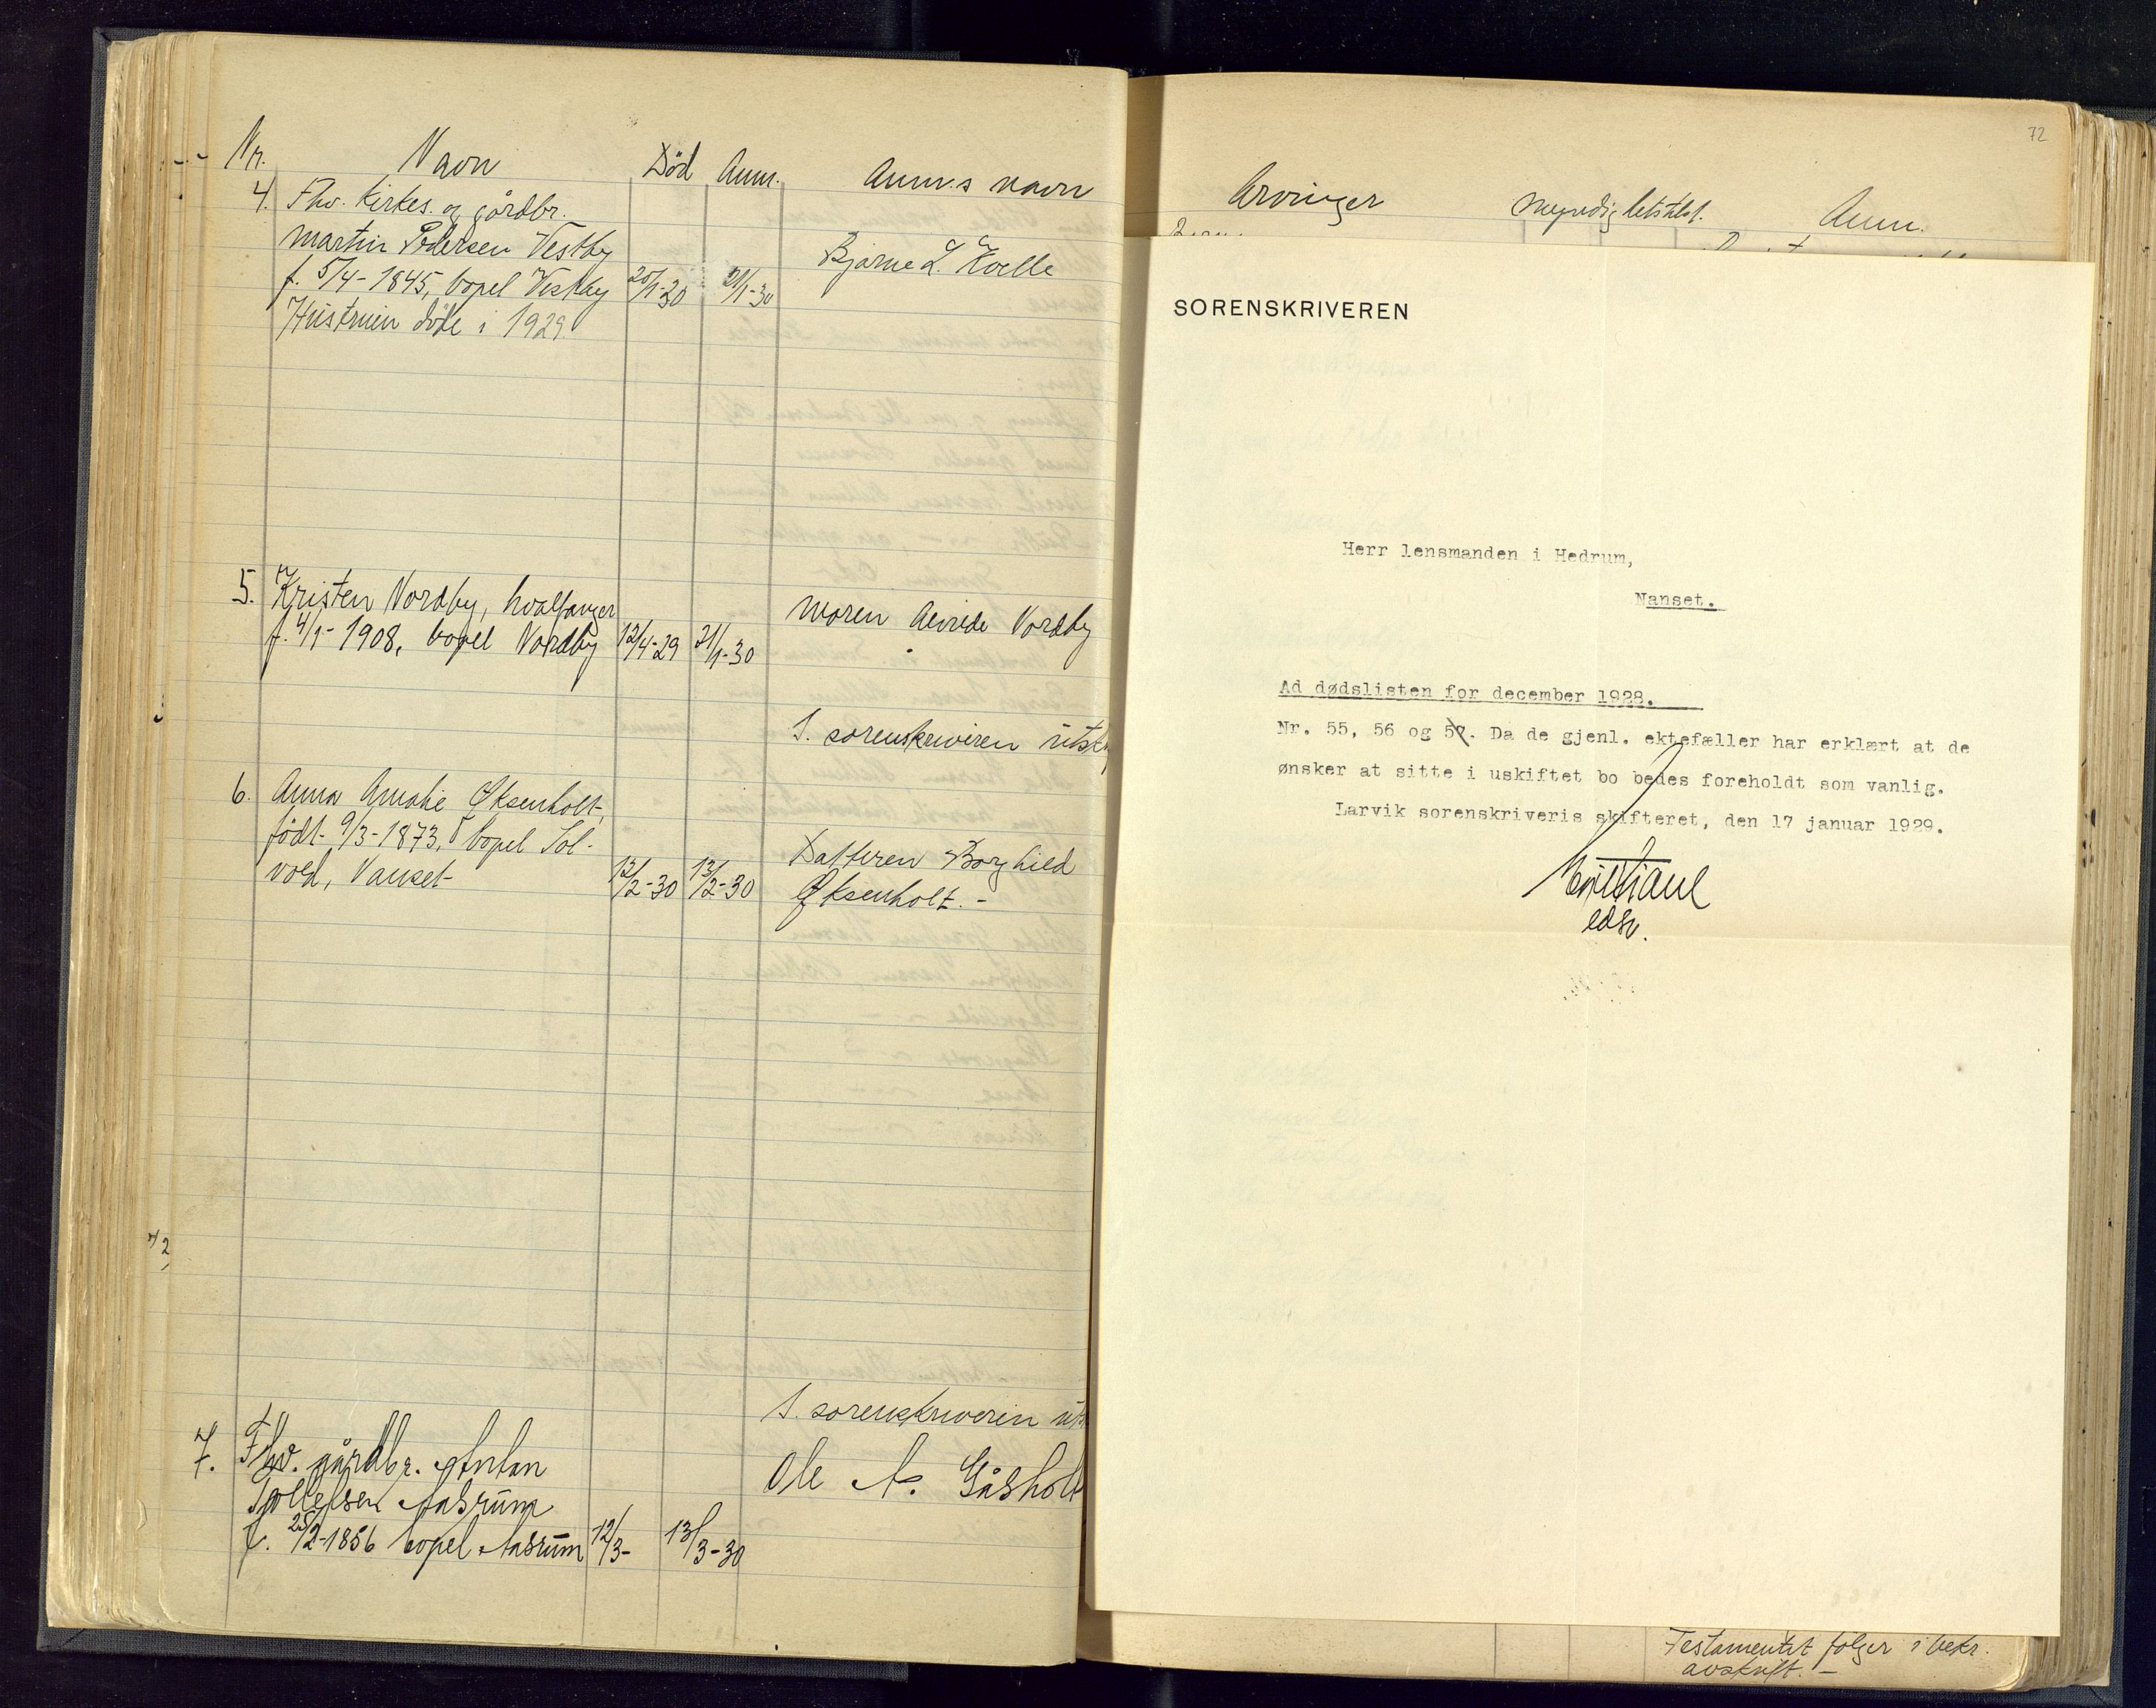 Nr. Navn Død Anm. Anm.s navn
4. Fhv. kirkes. og gårdbr.
Martin Pedersen Vestby
f. 5/4-1845, bopel Vestby 20/1-30 21/1-30 Bjarne L. Kvelle
Hustruen døde i 1929.
5. Kristen Nordby, hvalfanger
f. 4/1-1908, bopel Nordby 12/4-29 21/1-30 Moren Nordby
S. sorenskriveren utsk
6. Anna Amalie Øksenholt,
født 9/3-1873, bopel Sol-
vold, Nanset 12/2-30 13/2-30 Datteren Borghild
Øksenholt. -
S. sorenskriveren uts
7. Fhv. gårdbr. Anton
Tollefsen Aasrum Ole A. Gåsholt
f. 25/2-1856 bopel Aasrum 12/3- 13/3-30
72
Arvinger Myndighetstilst. Anm.
SORENSKRIVEREN
Herr lensmanden i Hedrum,
Nanset.
Ad dødslisten for december 1928.
Nr. 55, 56 og 57. Da de gjenl. ektefæller har erklært at de
ønsker at sitte i uskiftet bo bedes foreholdt som vanlig.
Larvik sorenskriveris skifteret, den 17 januar 1929.
edsv.
Testamentet følger i bekr.
avskrift. -